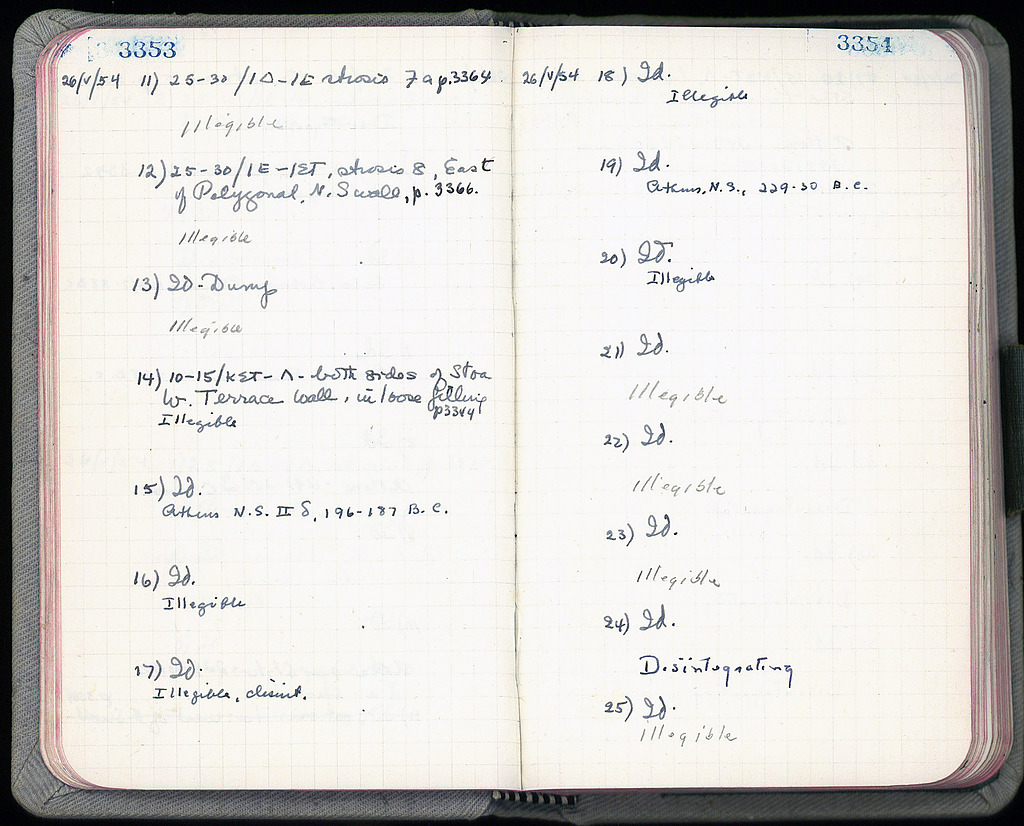 3353
26/V/54 11) 25-30/ΙΔ-ΙΕ strosis 7a p.3364
Illegible
12) 25-30/ΙΕ-ΙΣΤ, strosis 8, East
of Polygonal, N. S wall, p. 3366.
Illegible
13) ΙΘ-Dump
Illegible
14) 10-15/ΚΣΤ-Λ- both sides of Stoa
W. Terrace wall, in loose filling
p3344
Illegible
15) Id.
Athens N.S. II δ, 196-187 B.C.
16) Id.
Illegible
17) Id.
Illegible, disint.
3354
26/V/54 18) Id.
Illegible
19) Id.
Athens, N.S., 229-30 B.C.
20) Id.
Illegible
21) Id.
Illegible
22) Id.
Illegible
23) Id.
Illegible
24) Id.
Disintegrating
25) Id.
Illegible